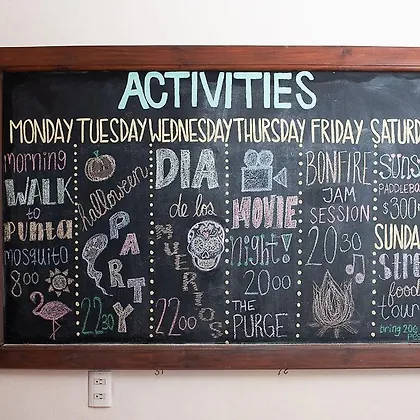 ACTIVITIES
MONDAY
morning
WALK
to
Punta
mosquito
8:00
TUESDAY
halloween
PARTY
22:30
WEDNESDAY
DIA
de los
MUERTOS
22:00
THURSDAY
MOVIE
night!
20:00
THE
PURGE
FRIDAY
BONFIRE
JAM
SESSION
20:30
SATURD
PADDLEBO
$300
SUNDA
food
tour
bring 20